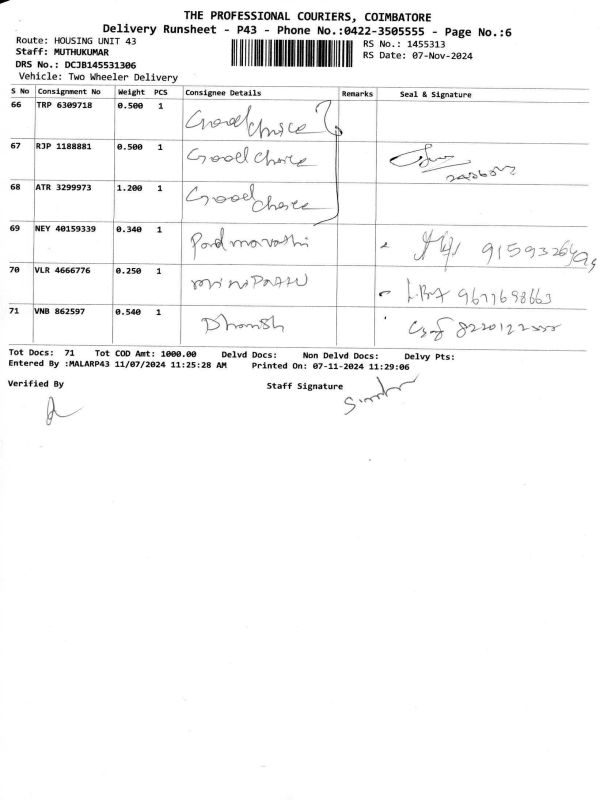 THE PROFESSIONAL COURIERS, COIMBATORE
Delivery Runsheet - P43 - Phone No.:0422-3505555 - Page No.:6
Route: HOUSING UNIT 43
RS No.: 1455313
Staff: MUTHUKUMAR
RS Date: 07-Nov-2024
DRS No.: DCJB145531306
Vehicle: Two Wheeler Delivery
S No Consignment No Weight PCS Consignee Details Remarks Seal & Signature
66 TRP 6309718 0.500 1 Good choice
67 RJP 1188881 0.500 1 Good choice
68 ATR 3299973 1.200 1 Good choice
69 NEY 40159339 0.340 1
70 VLR 4666776 0.250 1 9677698663
71 VNB 862597 0.540 1 Dhanish
Tot Docs: 71 Tot COD Amt: 1000.00 Delvd Docs: Non Delvd Docs: Delvy Pts:
Entered By :MALARP43 11/07/2024 11:25:28 AM Printed On: 07-11-2024 11:29:06
Verified By Staff Signature